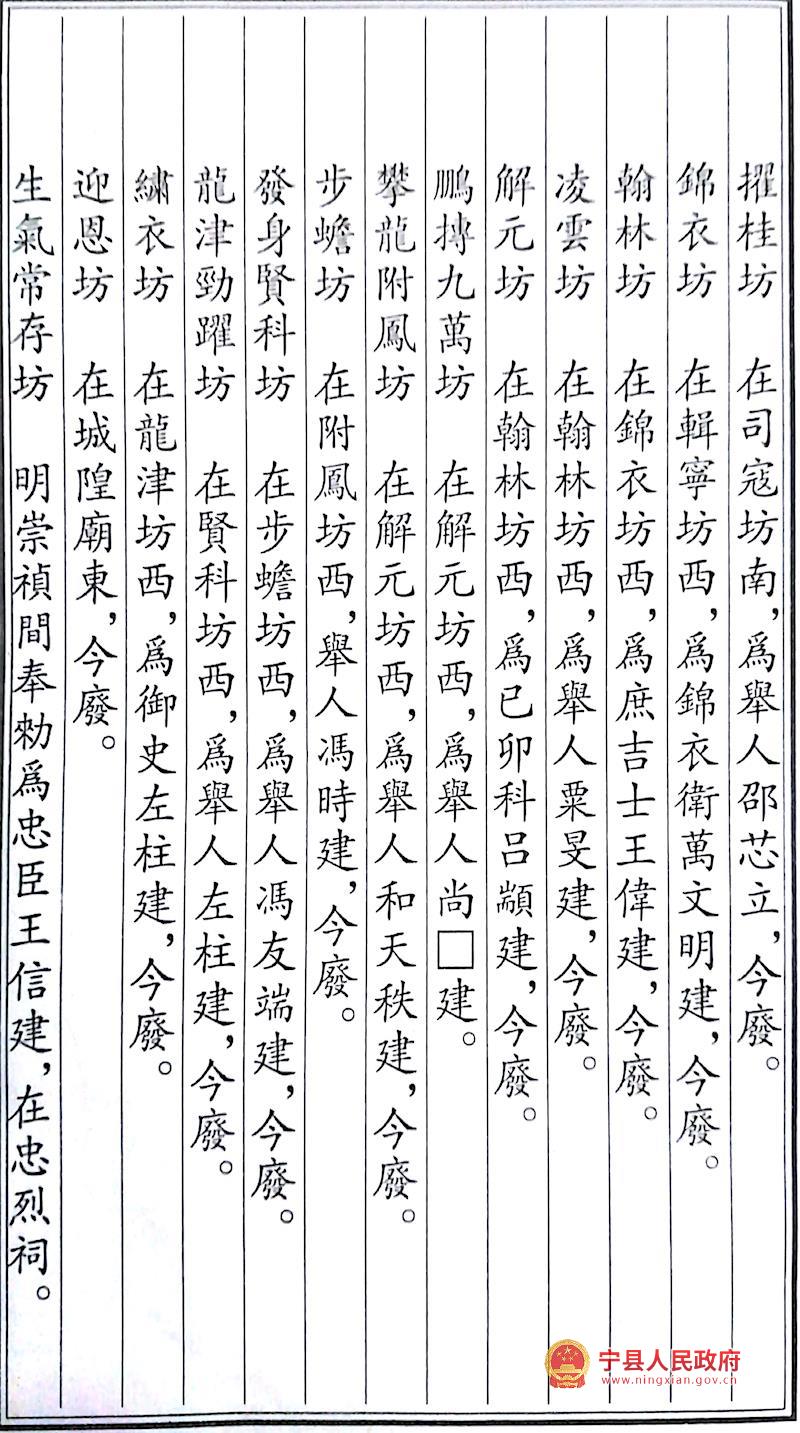 擢桂坊　在司寇坊南，爲舉人邵芯立，今廢。
錦衣坊　在輯寧坊西，爲錦衣衛萬文明建，今廢。
翰林坊　在錦衣坊西，爲庶吉士王偉建，今廢。
凌雲坊　在翰林坊西，爲舉人粟旻建，今廢。
解元坊　在翰林坊西，爲已卯科呂顓建，今廢。
鵬摶九萬坊　在解元坊西，爲舉人尚□建。
攀龍附鳳坊　在解元坊西，爲舉人和天秩建，今廢。
步蟾坊　在附鳳坊西，舉人馮時建，今廢。
發身賢科坊　在步蟾坊西，爲舉人馮友端建，今廢。
龍津勁躍坊　在賢科坊西，爲舉人左柱建，今廢。
繡衣坊　在龍津坊西，爲御史左柱建，今廢。
迎恩坊　在城隍廟東，今廢。
生氣常存坊　明崇禎間奉勑爲忠臣王信建，在忠烈祠。
宁县人民政府
www.ningxian.gov.cn